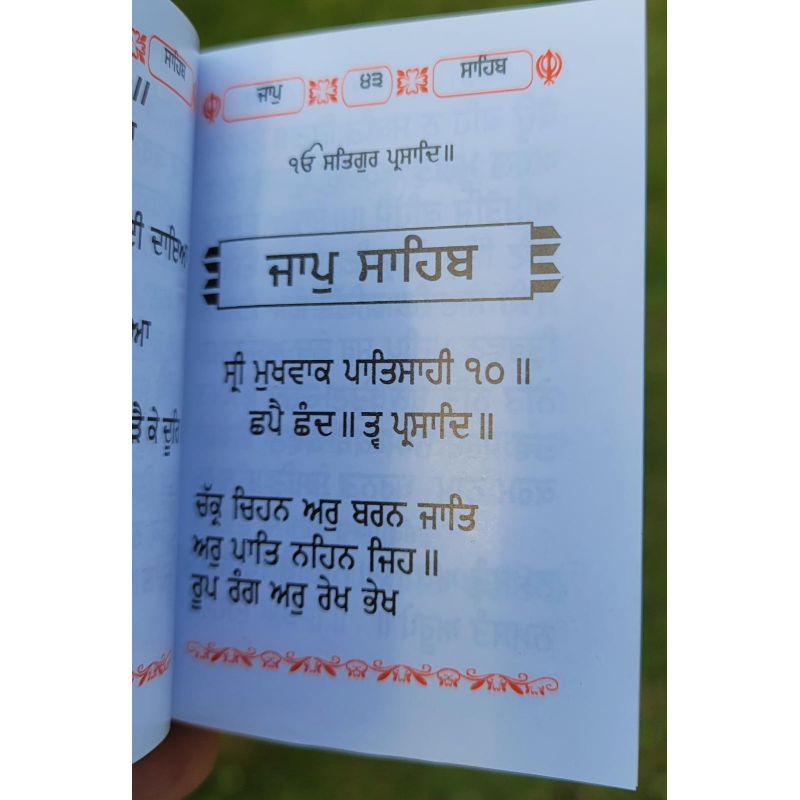 ਸਾਹਿਬ
॥
ਦਾਇਆ
ੜੈ ਕੇ
ਜਾਪੁ ੪੩ ਸਾਹਿਬ
ੴ ਸਤਿਗੁਰ ਪ੍ਰਸਾਦਿ॥
ਜਾਪੁ ਸਾਹਿਬ
ਸ੍ਰੀ ਮੁਖਵਾਕ ਪਾਤਿਸਾਹੀ ੧੦॥
ਛਪੈ ਛੰਦ॥ ਤ੍ਵ ਪ੍ਰਸਾਦਿ॥
ਚੱਕ੍ਰ ਚਿਹਨ ਅਰੁ ਬਰਨ ਜਾਤਿ
ਅਰੁ ਪਾਤਿ ਨਹਿਨ ਜਿਹ॥
ਰੂਪ ਰੰਗ ਅਰੁ ਰੇਖ ਭੇਖ